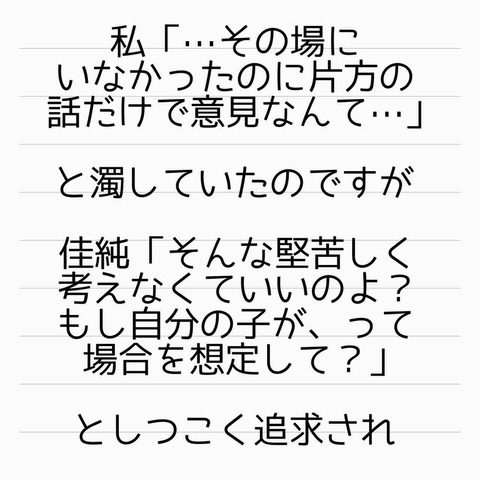 私「…その場に
いなかったのに片方の
話だけで意見なんて…」
と濁していたのですが
佳純「そんな堅苦しく
考えなくていいのよ？
もし自分の子が、って
場合を想定して？」
としつこく追求され